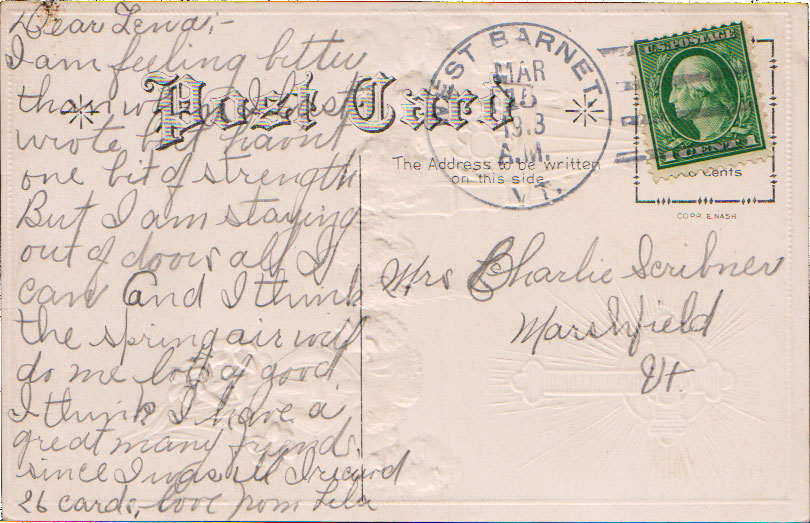 Dear Lena;-
I am feeling better
than when I last
wrote but havnt
one bit of strength
But I am staying
out of doors all I
can and I think
the spring air will
do me lots of good
I think I have a
great many friends
since I was ill I recieved
26 cards, love from Lila
Post Card
The Address to be written
on this side
WEST BARNET
MAR
1913
A.M.
VT.
U.S. POSTAGE
1 CENT 1
Cents
COPR. E. NASH
Mrs Charlie Scribner
Marshfield
Vt.